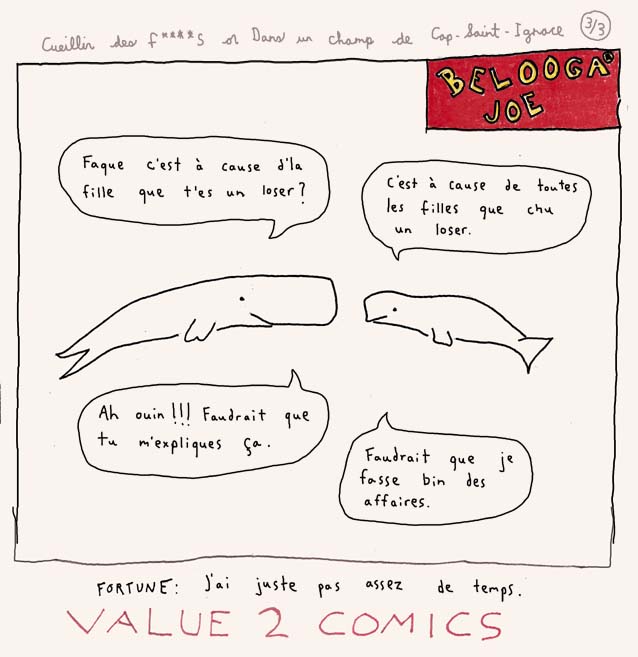 Cueillir des f****s or Dans un champ de Cap-Saint-Ignace 3/3
BELOOGA®
JOE
Faque c'est à cause d'la
fille que t'es un loser?
C'est à cause de toutes
les filles que chu
un loser.
Ah ouin!!! Faudrait que
tu m'expliques ça.
Faudrait que je
fasse bin des
affaires.
FORTUNE: J'ai juste pas assez de temps.
VALUE 2 COMICS